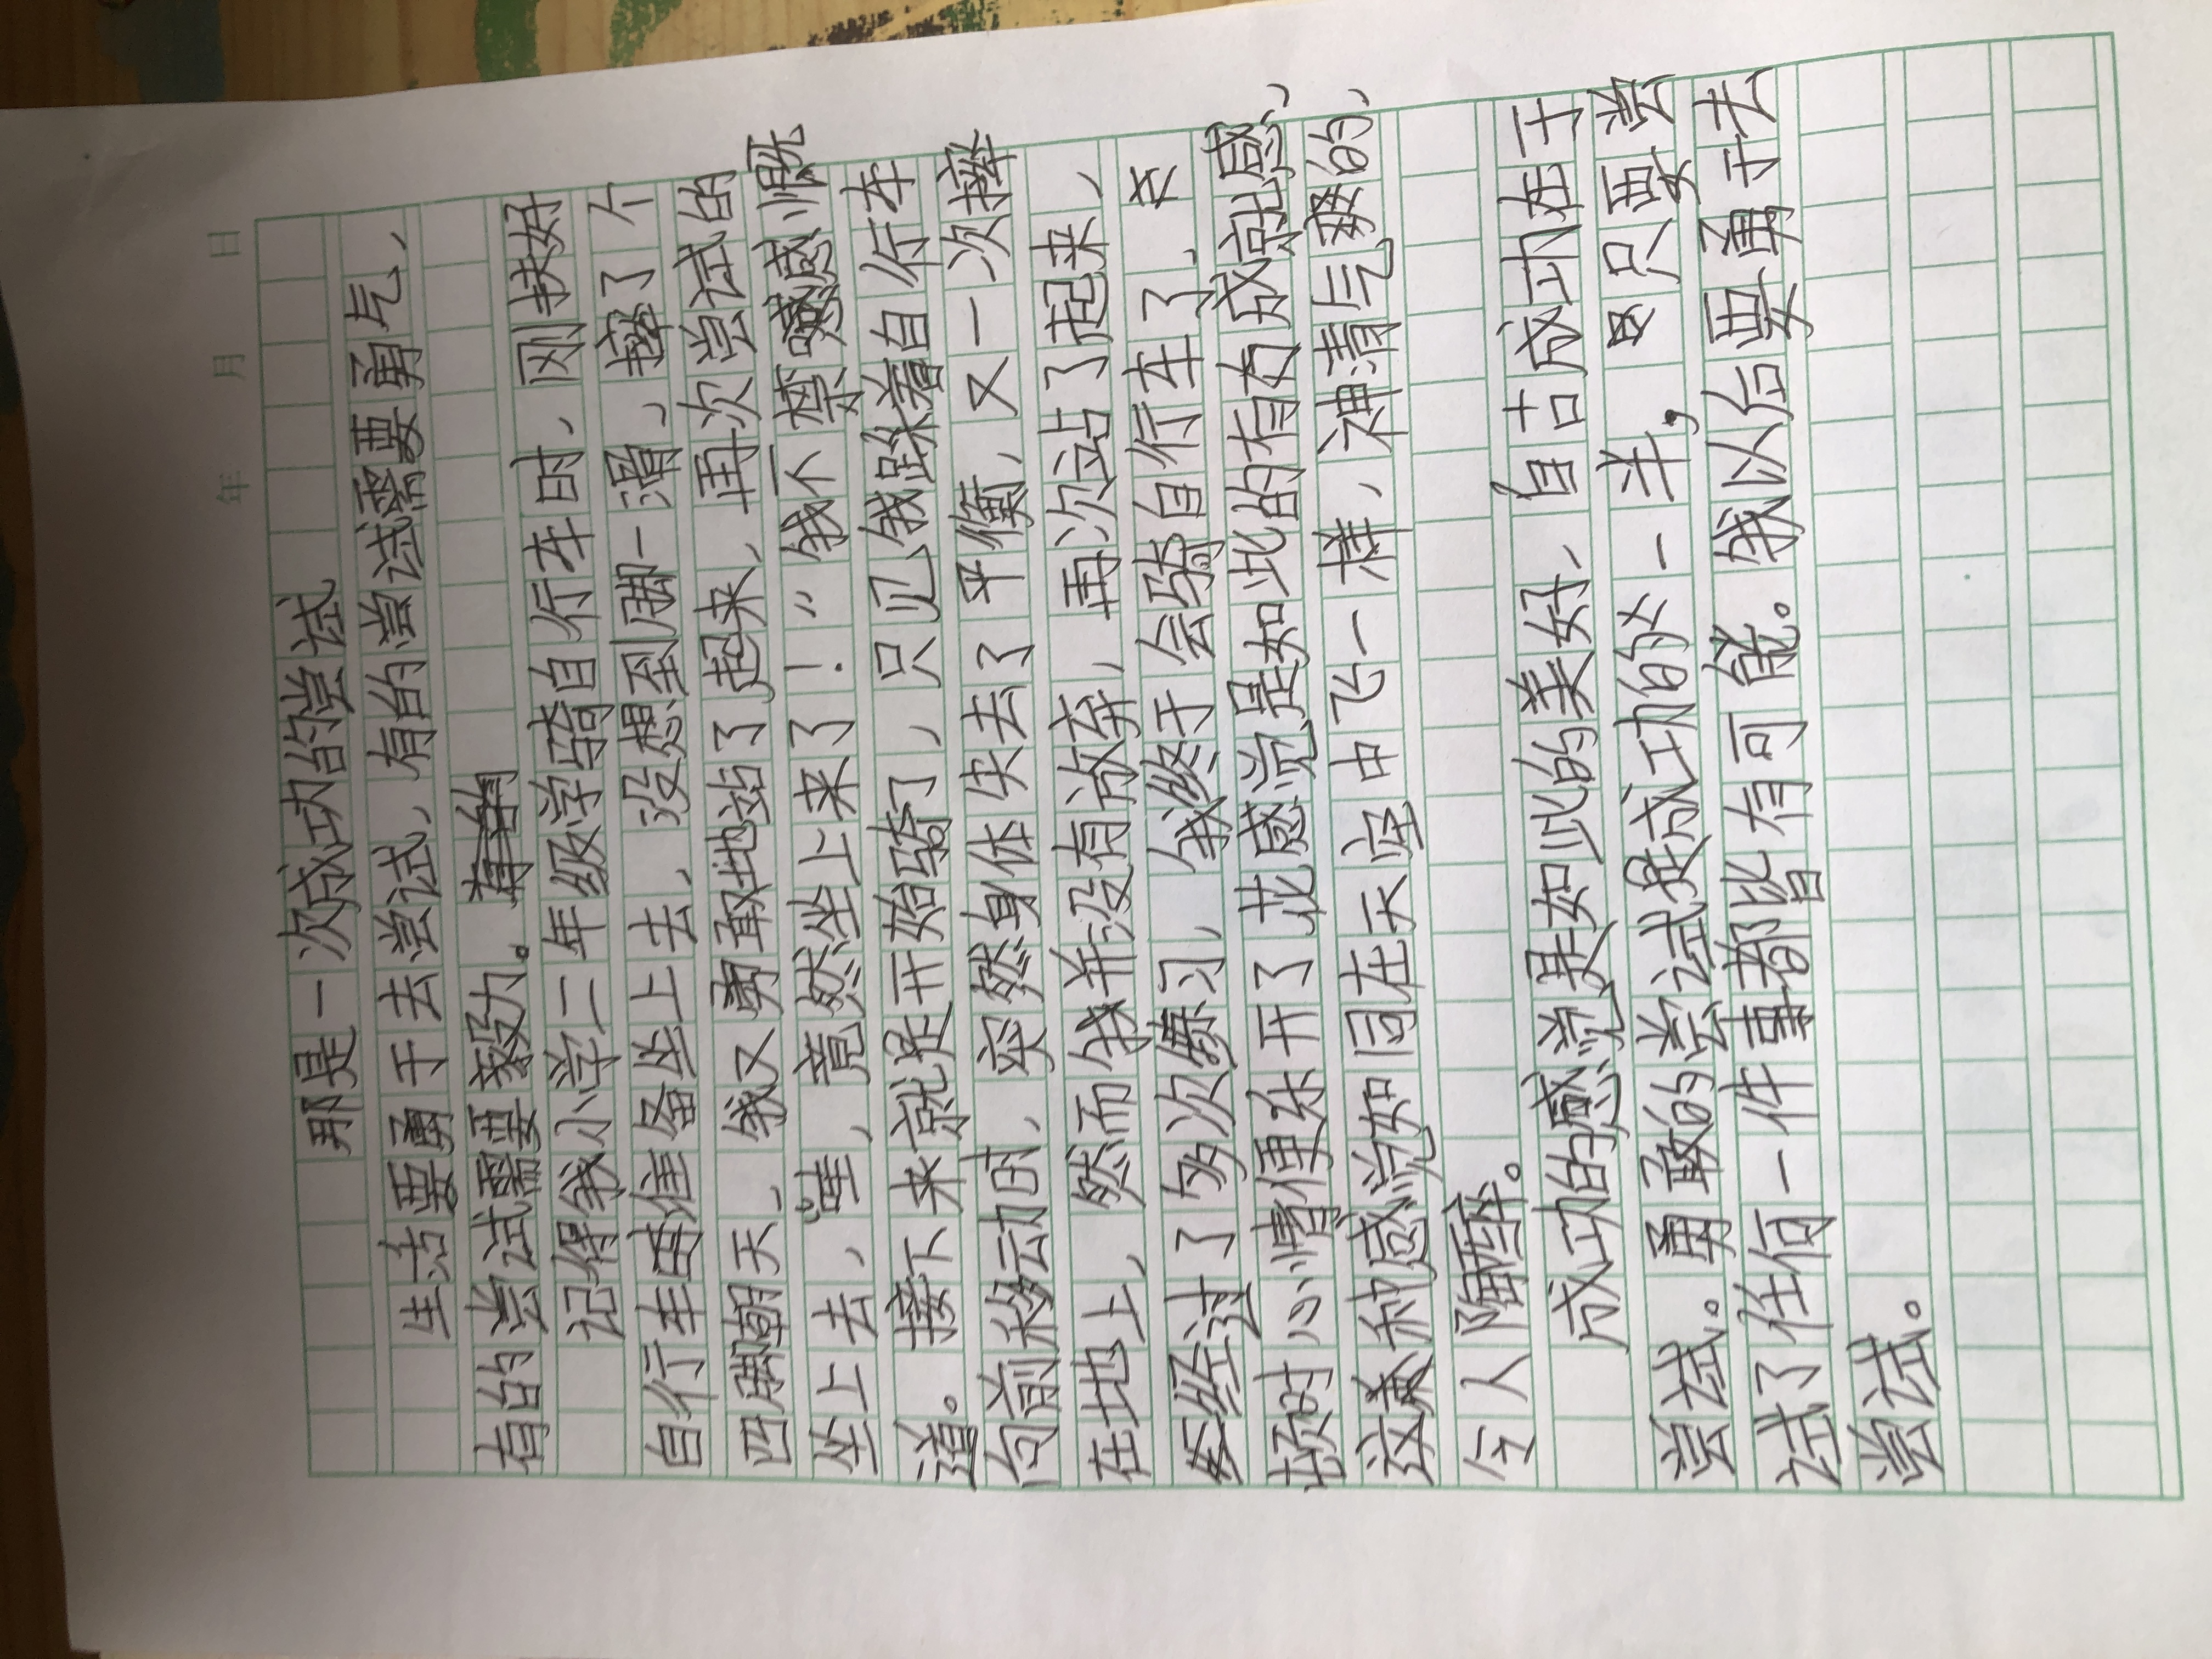 年 月 日
那是一次成功的尝试
生活要勇于去尝试，有的尝试需要勇气，
有的尝试需要毅力。
记得我小学二年级学骑自行车时，刚扶好
自行车准备坐上去，没想到脚一滑，摔了个
四脚朝天，我又勇敢地站了起来，再次尝试的
坐上去，哇，竟然坐上来了！”我不禁感慨
道。接下来就是开始骑了，只见我踩着自行车
向前移动的，突然身体失去了平衡，又一次摔
在地上，然而我并没有放弃，再次站了起来，
经过了多次练习，我终于会骑自行车了，
顿时心情便乐开了花感觉是如此的有成就感，
这种感觉如同在天空中飞一样，神清气爽的，
令人陶醉。
成功的感觉是如此的美好，自古成功在于
尝试。勇敢的尝试是成功的一半，只要尝
试了任何一件事都皆有可能。我以后要勇于去
尝试。